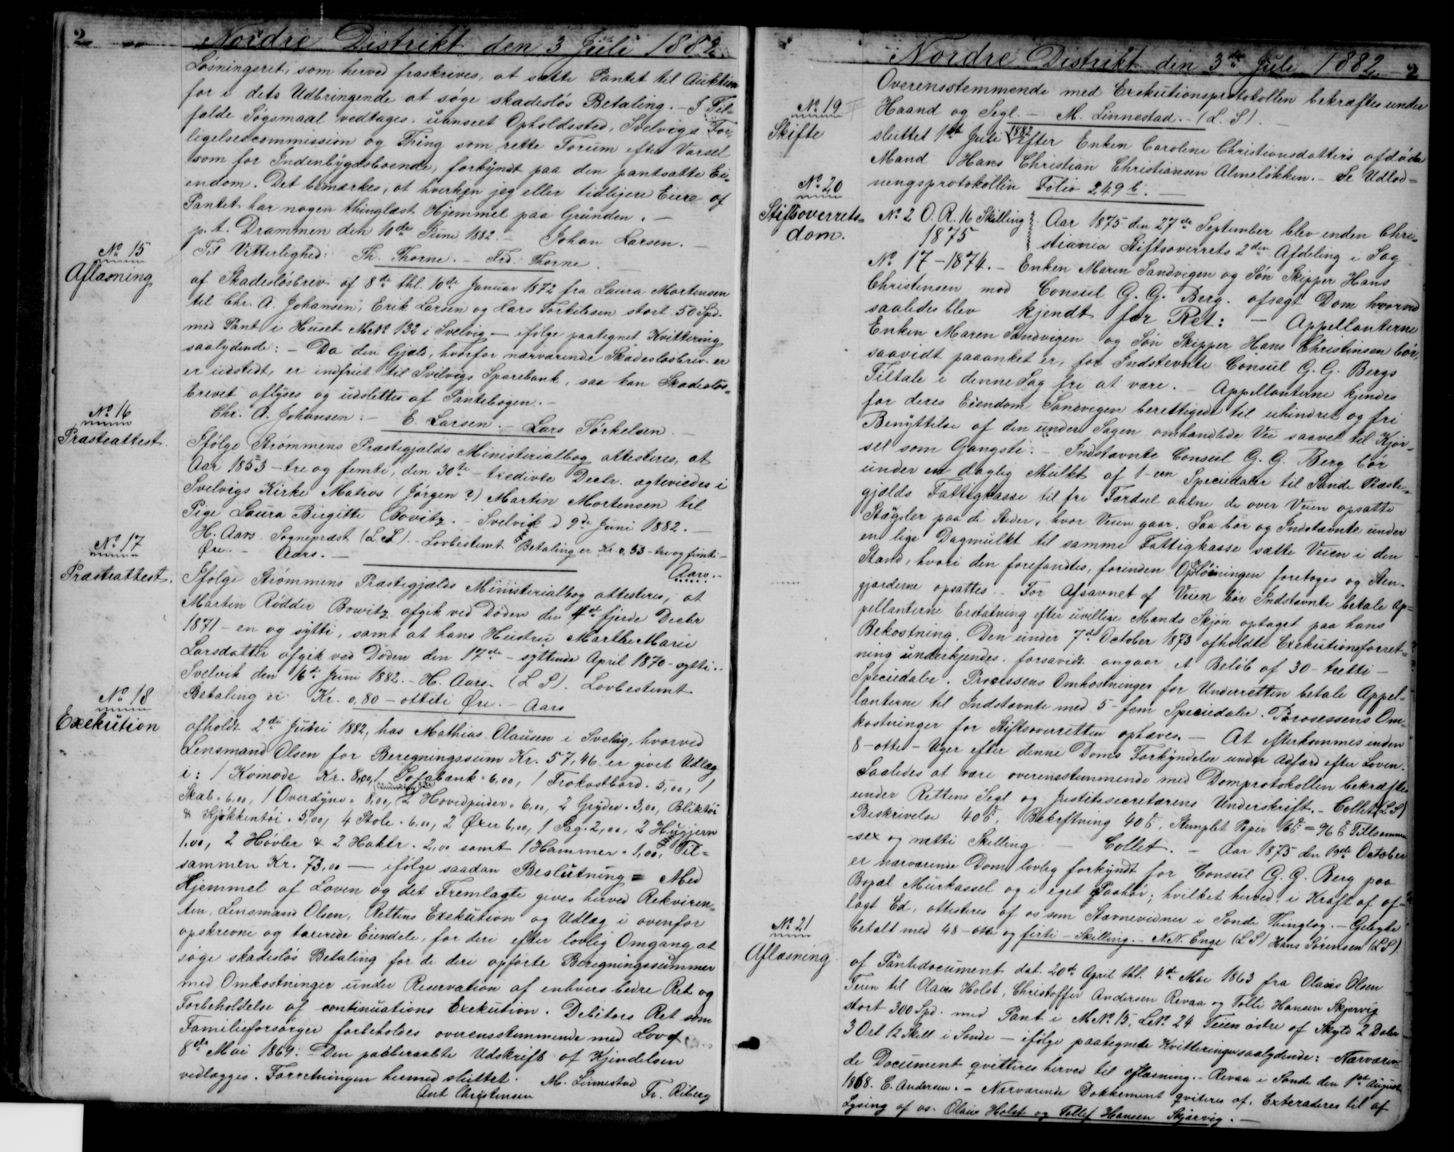 2
Nordre Distrikt den 3 Juli 1882
Løsningsret, som herved fraskrives, at sætte Pantet til Auktion
for i dets Udbringende at søge skadesløs Betaling. – I Til-
fælde Søgsmaal vedtages, uanseet Opholdssted, Svelvigs For-
ligelsescommission og Thing som rette Forum efter Varsel
som for Indenbygdsboende, forkyndt paa den pantsatte Ei-
endom. Det bemærkes, at hverken jeg eller tidligere Eiere af
Pantet har nogen thinglæst Hjemmel paa Grunden. –
p. t. Drammen den 10de Juni 1882. – Johan Larsen.
Til Vitterlighed: Th. Thorne. – Frd. Thorne.
No 15
Aflæsning
af Skadesløsbrev af 8de thl. 10de Januar 1872 fra Laura Mortensen
til Chr. A. Johansen, Erik Larsen og Lars Torkelsen stort 50 Spd.
med Pant i Huset MtrN 132 i Svelvig – ifølge paategnet Kvittering
saalydende: – Da den Gjæld, hvorfor nærværende Skadesløsbrev er
er udstedt, er indfriet til Svelvigs Sparebank, saa kan Skadesløs-
brevet aflyses og udslettes af Pantebogen. –
Chr. A. Johansen. – E. Larsen. – Lars Torkelsen.
No 16
Præsteattest.
Ifølge Strømmens Præstegjælds Ministerialbog attesteres, at
Aar 1853 – tre og femti, den 30te – tredivte Decbr. ægteviedes i
Svelvigs Kirke Matros (Jørgen ?) Martin Mortensen til
Pige Laura Birgitte Bowitz. – Svelvik d 9de Juni 1882. –
H. Aars Sogneprest (L.S). – Lovbestemt Betaling er Kr. 0,53 – tre og femti –
Øre. – Aars. –
No 17
Præsteattest.
Aars. –
Ifølge Strømmens Præstegjælds Ministerialbog attesteres, at
Martin Rødder Bowitz afgik ved Døden den 4de fjerde Decbr
1871 – en og sytti, samt at hans Hustru Marthe Marie
Larsdatter afgik ved Døden den 17de – syttende April 1870 – sytti. –
Svelvik den 16de Juni 1882. – H. Aars. (L S). Lovbestemt
Betaling er Kr. 0,80 – ottiti Øre. – Aars
No 18
Exekution
afholdt 2den Juni 1882, hos Mathias Olausen i Svelvig, hvorved
Lensmand Olsen for Beregningssum Kr. 57,46 er givet Udlæg
i: 1 Komode Kr. 8,00, 1 Sofabænk 6,00, 1 Frokostbord 5,00, 1
Skab 6,00, 1 Overdyne 8,00, 2 Hovedpuder 6,00, 2 Gryder 3,00, Bliktøi
& Kjøkkentøi 5,00, 4 Stole 6,00, 2 Øxer 6,00, 1 Sag 2,00, 2 Hugjern
1,00, 2 Høvler & 2 Hakker 2,00 samt 1 Hammer 1,00, Til-
sammen Kr. 73,00 – ifølge saadan Beslutning = Med
Hjemmel af Loven og det Fremlagte gives herved Rekviren-
ten, Lensmand Olsen, Rettens Exekution og Udlæg i ovenfor
opskrevne og taxerede Eiendele, for deri efter lovlig Omgang at
søge skadesløs Betaling for de deri opførte Beregningssummer
med Omkostninger under Reservation af enhvers bedre Ret og
Forbeholdelse af continuations Exekution. Debitors Ret som
Familieforsørger forbeholdes overensstemmende med Lov af
8de Mai 1869. Den paaberaabte Udskrift af Kjendelsen
vedlægges. Forretningen hermed sluttet.
M. Linnestad Fr. Riberg
Ant Christensen
Nordre Distrikt den 3de Juli 1882
2
Overensstemmende med Exekutionsprotokollen bekræftes under
Haand og Segl. – M. Linnestad. – (L. S). –
No 19
Skifte
sluttet 1ste Juli 1882 efter Enken Caroline Christiansdatters afdøde
Mand Hans Christian Christiansen Almeløkken. – Se Udlod-
ningsprotokollen Folio 249 b.
No 20
Stiftsoverrets-
dom.
No 2 O. R. 16 Skilling
1875
Aar 1875 den 27de September blev inden Chris-
tiania Stiftsoverrets 2den Afdeling i Sag
No 17 – 1874. – Enken Maren Sandvigen og Søn Skipper Hans
Christinsen mod Consul G. G. Berg afsagt Dom hvorved
saaledes blev kjendt for Ret: – Appellanterne
Enken Maren Sandvigen og Søn Skipper Hans Christinsen bør,
saavidt paaanket er, for Indstevnte Consul G. G. Bergs
Tiltale i denne Sag fri at være. – Appellanterne kjendes
for deres Eiendom Sandvigen berettigede til uhindret og fri
Benyttelse af den under Sagen omhandlede Vei saavel til Kjør-
sel som Gangsti. – Indstævnte Consul G. G. Berg bør
under en daglig Mulkt af 1 – en Speciedaler til Sande Præste-
gjælds Fattigkasse til fri Færdsel aabne de over Veien opsatte
Stængsler paa de Steder, hvor Veien gaar. Saa bør og Indstævnte under
en lige Dagmulkt til samme Fattigkasse sætte Veien i den
Stand, hvori den forefandtes, forinden Opløiningen foretoges og Sten-
gjærderne opsattes. – For Afsavnet af Veien bør Indstævnte betale Ap-
pellanterne Erstatning efter uvillige Mænds Skjøn optaget paa hans
Bekostning. Den under 7de October 1873 afholdte Exekutionsforret-
ning underkjendes, forsavidt angaar et Beløb af 30 – tretti –
Speciedaler. Processens Omkostninger for Underretten betale Appel-
lanterne til Indstævnte med 5 – fem Speciedaler. Processens Om-
kostninger for Stiftsoverretten ophæves. – At efterkommes inden
8 – otte – Uger efter denne Doms Forkyndelse under Adfærd efter Loven.
Saaledes at være overensstemmende med Domprotokollen bekræftes
under Rettens Segl og Justitssecretærens Underskrift. – Collett (L.S)
Beskrivelse 40 s, Bekræftning 40 s, Stemplet Papir 16 s = 96 s Tilsammen
sex og nætti Skilling – Collett. – Aar 1875 den 19de October
er nærværende Dom lovlig forkyndt for Consul G. G. Berg paa
Bopæl Murkassel og i eget Paahør; hvilket herved i Kraft af af-
lagt Ed, attesteres af os som Stævnevidner i Sande Thinglag. – Gebyrtet
betalt med 48 – otte og firti – Skilling. – N. N. Enge (L S) Hans Sørensen (L S).
No 21
Aflæsning.
af Pantedocument dat. 20de April thl. 4de Mai 1863 fra Olaus Olsen
Teien til Olaus Holst, Christoffer Andersen Revaa og Tollef Hansen Skjærvig
stort 300 Spd. med Pant i M No 15, L No 24 Teien østre af Skyld 2 Daler
3 Ort 12 Skill i Sande – ifølge paategnede Kvitteringer saalydende: – Nærværen-
de Document qvitteres herved til aflæsning. – Revaa i Sande den 1ste August
1868. E. Andersen. – Nærværende Dokkement qviteres af. Exteraderes til af
Lysing af os. Olaus Holst og Tollef Hansen Skjærvig. –